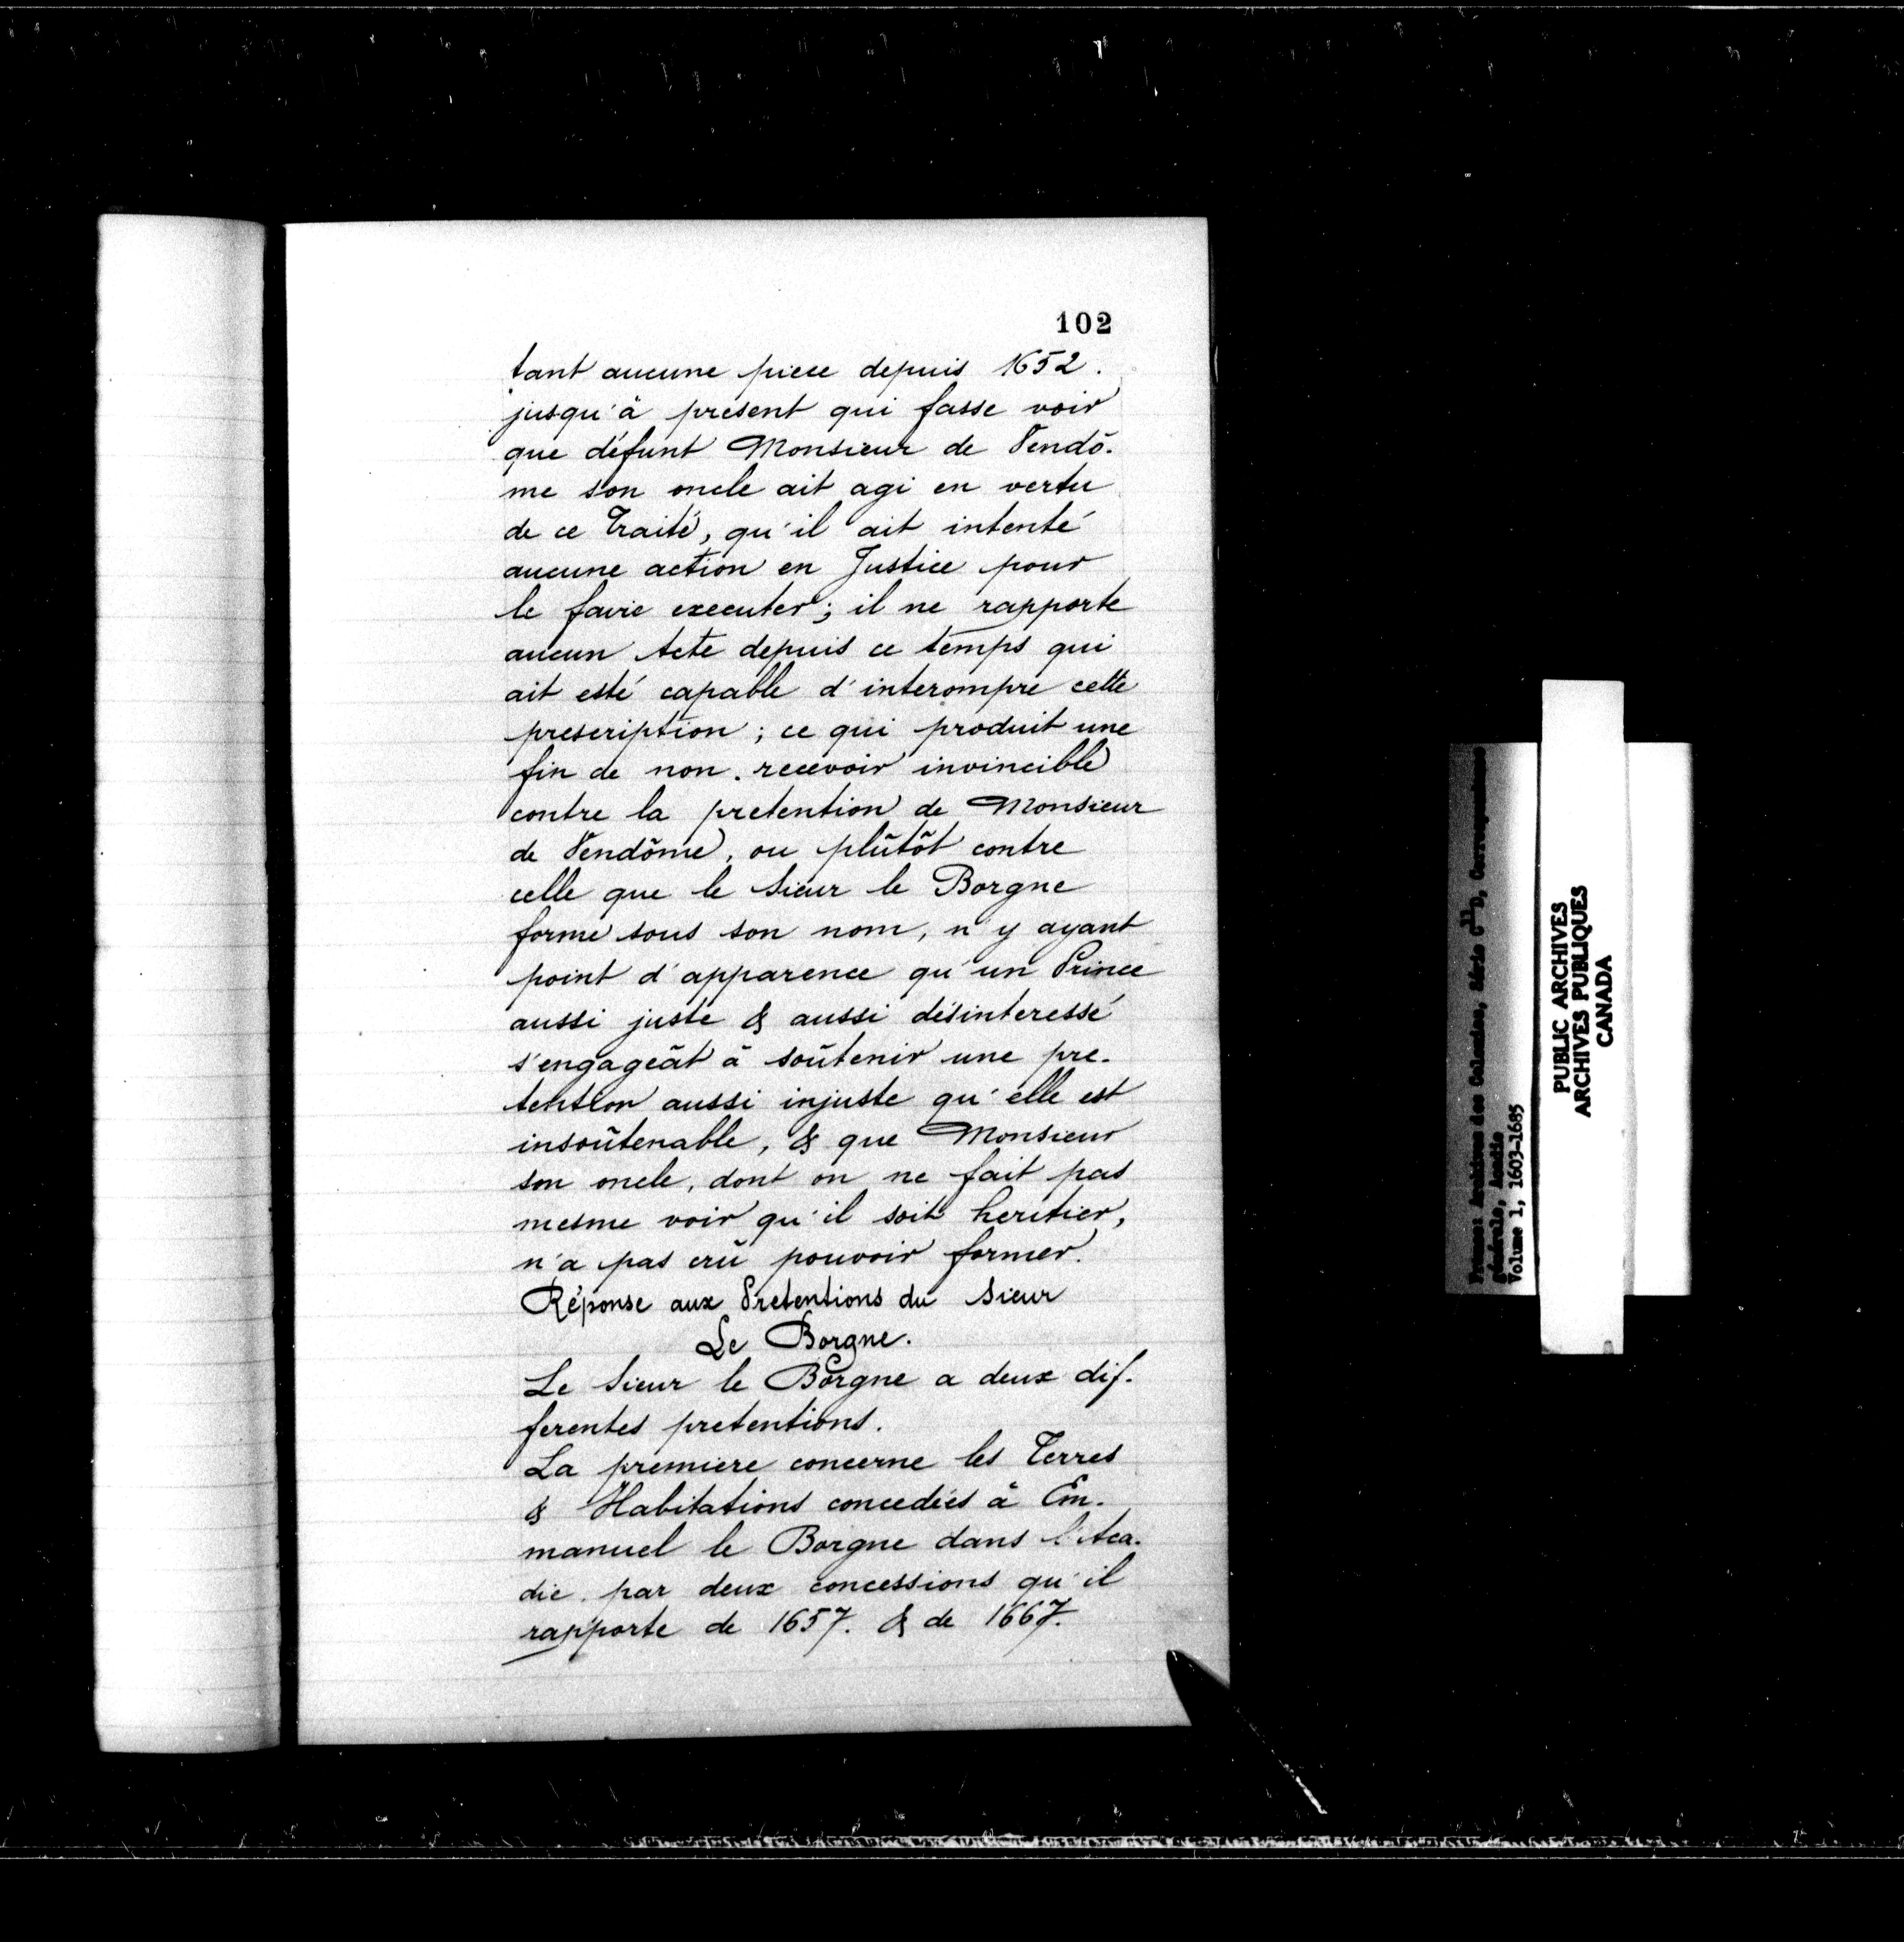 102
tant aucune piece depuis 1652.
jusqu'à present qui fasse voir
que défunt Monsieur de Vendô-
me son oncle ait agi en vertu
de ce Traité, qu'il ait intenté
aucune action en Justice pour
le faire executer; il ne rapporte
aucun Acte depuis ce temps qui
ait esté capable d'interompre cette
prescription; ce qui produit une
fin de non-recevoir invincible
contre la pretention de Monsieur
de Vendôme, ou plûtôt contre
celle que le Sieur le Borgne
forme sous son nom, n'y ayant
point d'apparence qu'un Prince
aussi juste & aussi désinteressé
s'engageât à soûtenir une pre-
tention aussi injuste qu'elle est
insoûtenable, & que Monsieur
son oncle, dont on ne fait pas
mesme voir qu'il soit heritier,
n'a pas crû pouvoir former.
Réponse aux Pretentions du Sieur
Le Borgne.
Le Sieur le Borgne a deux dif-
ferentes pretentions.
La premiere concerne les Terres
& Habitations concedées à Em-
manuel le Borgne dans l'Aca-
die par deux concessions qu'il
rapporte de 1657. & de 1667.
France: Archives des Colonies, Série C11D, Correspondance
générale, Acadie
Volume 1, 1603-1685
PUBLIC ARCHIVES
ARCHIVES PUBLIQUES
CANADA